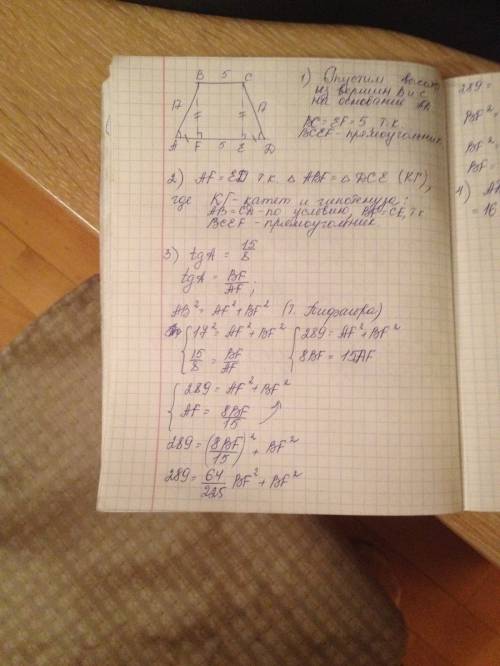 B 5 C
17 17
A F 5 E D
1) Опустим
из вершин B и C
на основание
BC = EF = 5 т.к.
BCEF - прямоугольник
2) AF = ED т.к. △ ABF = △ DCE (КГ),
где КГ - катет и гипотенуза;
AB = CD - по условию, BF = CE, т.к
BCEF - прямоугольник
3) tgA = 15/8
tgA = BF/AF;
AB² = AF² + BF² (т. Пифагора)
17² = AF² + BF² 289 = AF² + BF²
15/8 = BF/AF 8BF = 15AF
289 = AF² + BF²
AF = 8BF/15
289 = (8BF/15)² + BF²
289 = 64/225 BF² + BF²
289 =
BF² =
BF²
BF =
4)
= 16